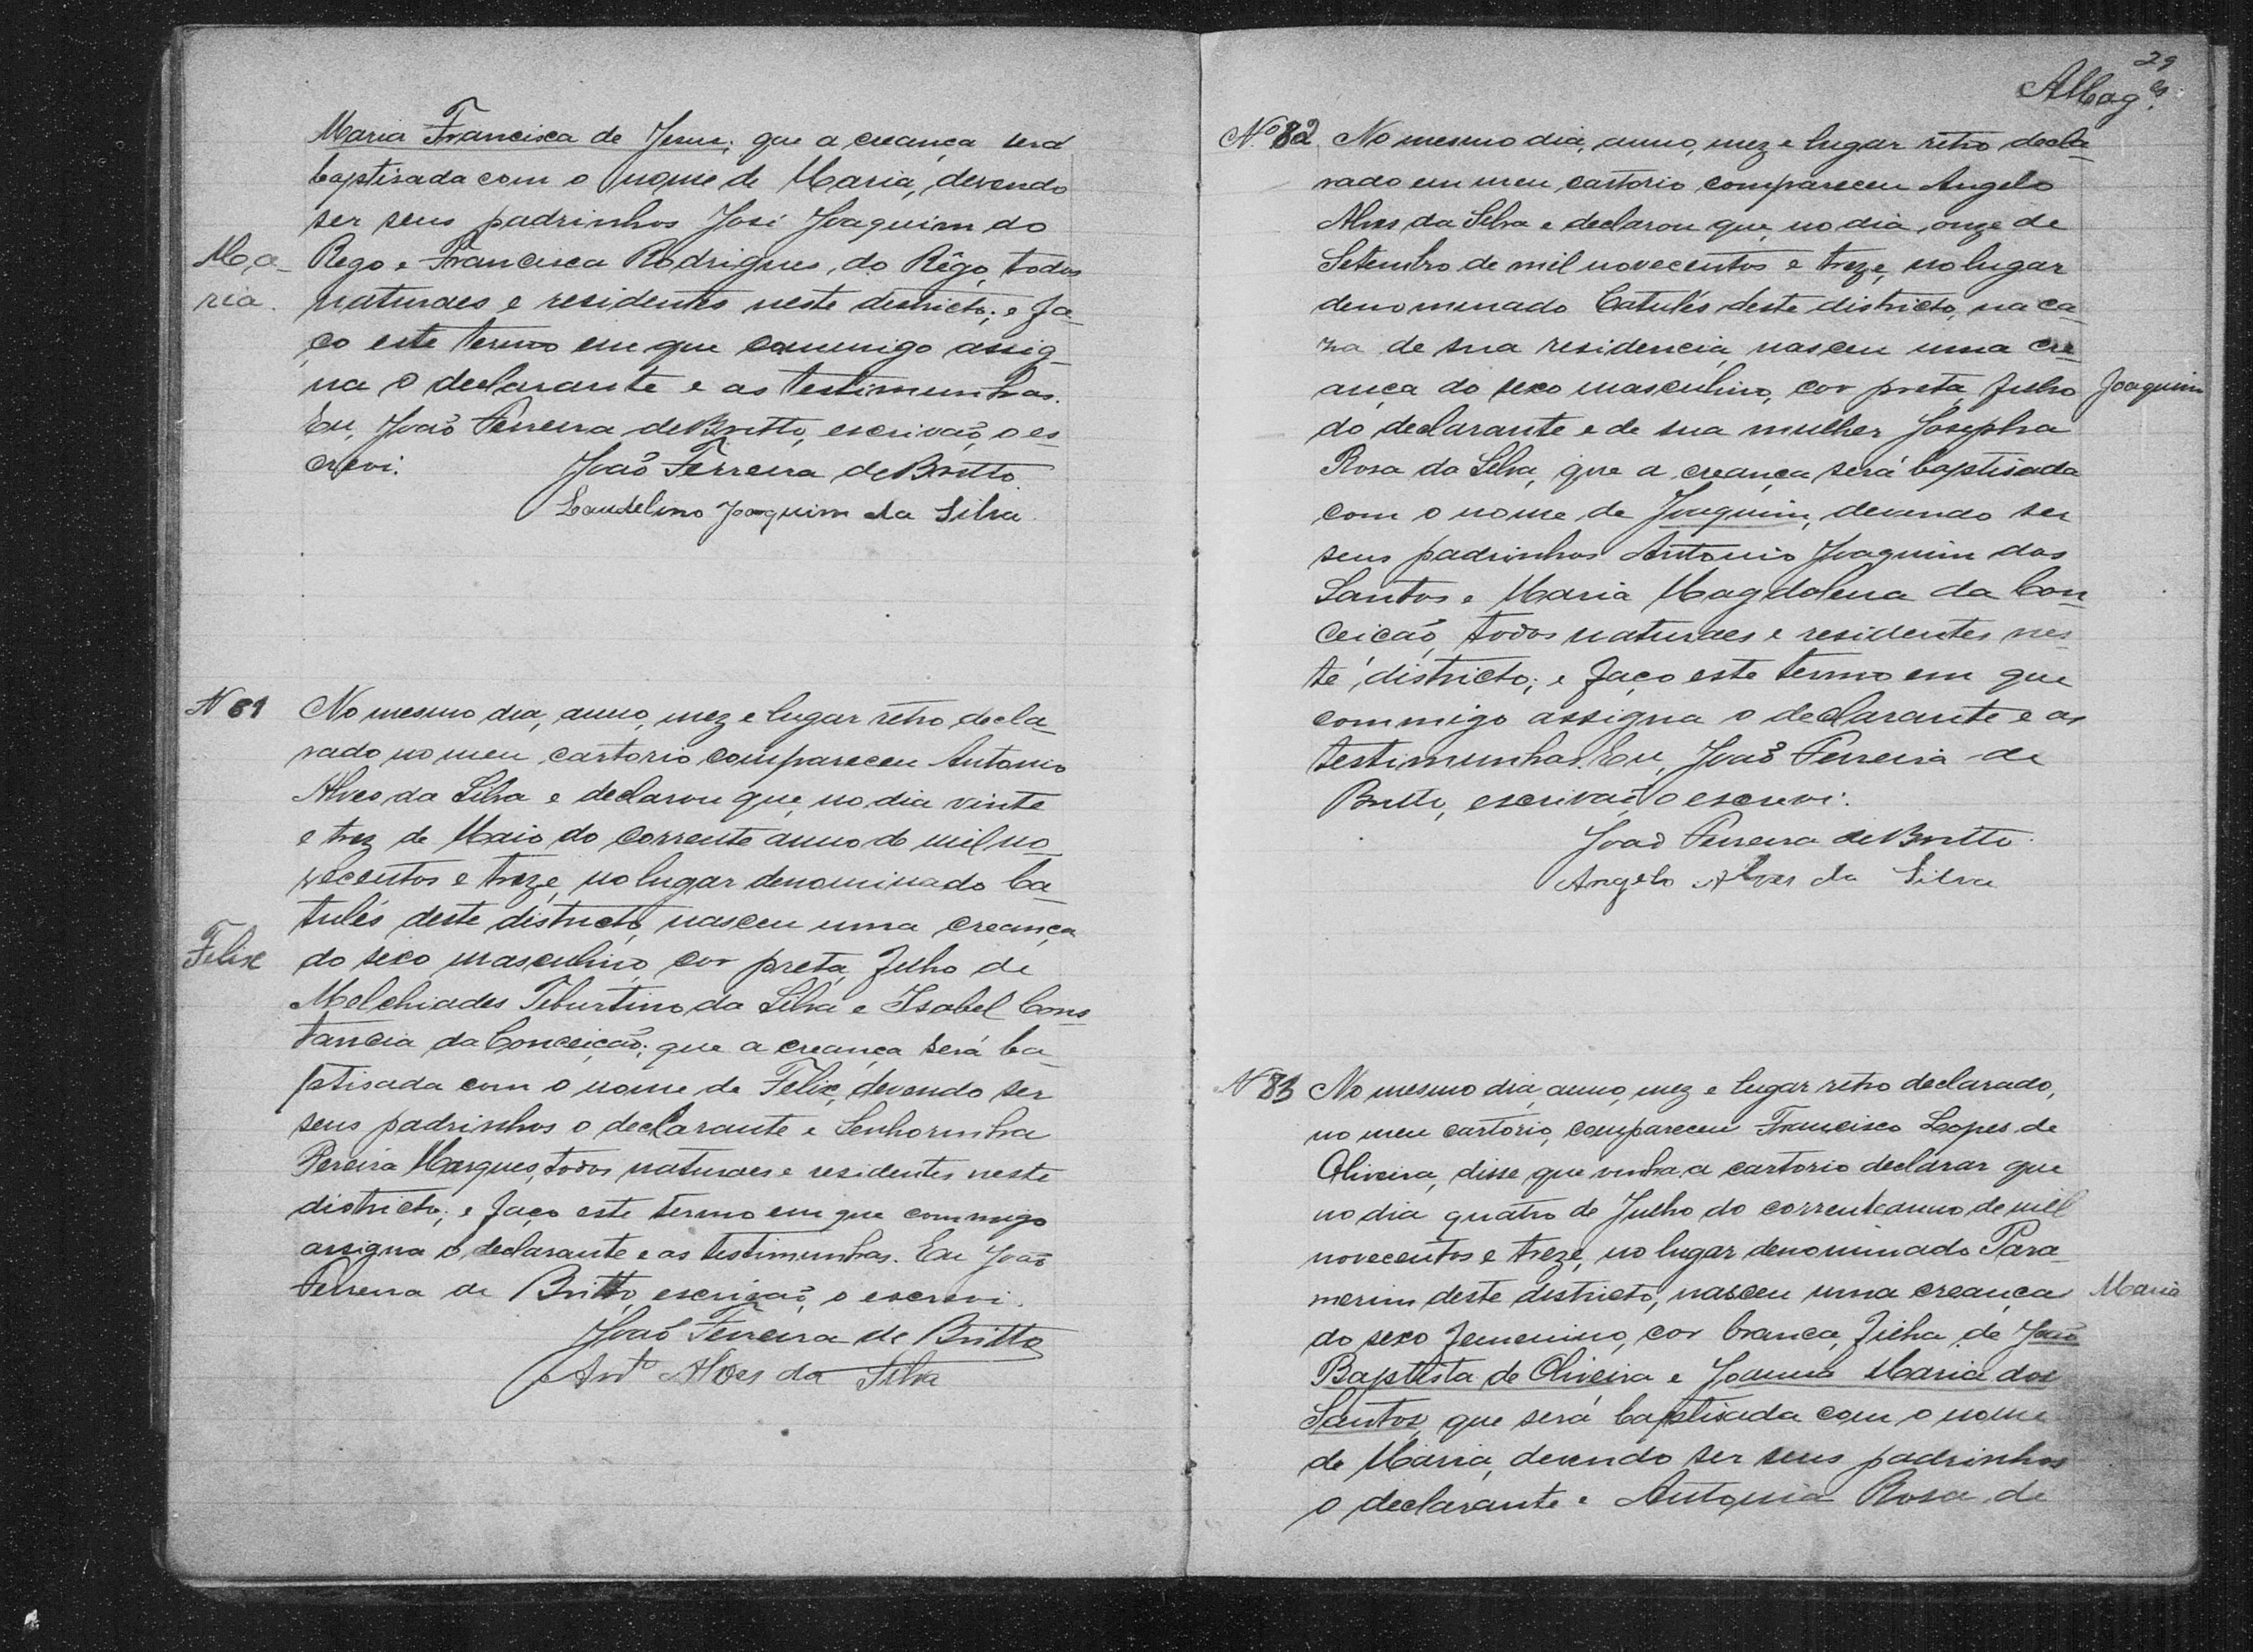 Maria Francisca de Jesus; que a creança será
baptisada com o nome de Maria, devendo
ser seus padrinhos José Joaquim do
Ma-
ria.
Rego e Francisca Rodrigues do Rêgo, todos
naturaes e residentes neste districto; e fa-
ço este termo em que commigo assig-
na o declarante e as testimunhas.
Eu, João Ferreira de Britto, escrivão, o es
crevi.
João Ferreira de Britto
Laudelino Joaquim da Silva
N 81
No mesmo dia, anno, mez e lugar retro decla-
rado no meu cartorio compareceu Antonio
Alves da Silva e declarou que, no dia vinte
e trez de Maio do corrente anno de mil no-
vecentos e treze, no lugar denominado Ca-
tulés deste districto, nasceu uma creança
Felix
do sexo masculino, cor preta, filho de
Melchiades Teburtino da Silva e Isabel Cons
tancia da Conceição; que a creança será ba-
ptisada com o nome de Felix, devendo ser
seus padrinhos o declarante e Senhorinha
Pereira Marques, todos naturaes e residentes neste
districto; e faço este termo em que commigo
assigna o declarante e as testimunhas. Eu João
Ferreira de Britto, escrivão, o escrevi.
João Ferreira de Britto
Antº Alves da Silva
29
Nº 82
No mesmo dia, anno, mez e lugar retro decla-
rado em meu cartorio compareceu Angelo
Alves da Silva e declarou que, no dia onze de
Setembro de mil novecentos e treze, no lugar
denominado Catulés deste districto, na ca-
za de sua residencia, nasceu uma cre-
ança do sexo masculino, cor preta, filho
Joaquim
do declarante e de sua mulher Josepha
Rosa da Silva, que a creança será baptisada
com o nome de Joaquim, devendo ser
seus padrinhos Antonio Joaquim dos
Santos e Maria Magdalena da Con-
ceição, todos naturaes e residentes nes-
te districto; e faço este termo em que
commigo assigna o declarante e as
testimunhas. Eu, João Ferreira de
Britto, escrivão, o escrevi.
João Ferreira de Britto.
Angelo Alves da Silva
N 83
No mesmo dia, anno, mez e lugar retro declarado,
no meu cartorio, compareceu Francisco Lopes de
Oliveira, disse que vinha a cartorio declarar que
no dia quatro de Julho do corrente anno de mil
novecentos e treze, no lugar denominado Para-
merim deste districto, nasceu uma creança
Maria
do sexo femenino, cor branca, filha de João
Baptista de Oliveira e Joanna Maria dos
Santos, que será baptisada com o nome
de Maria, devendo ser seus padrinhos
o declarante e Antonia Rosa de